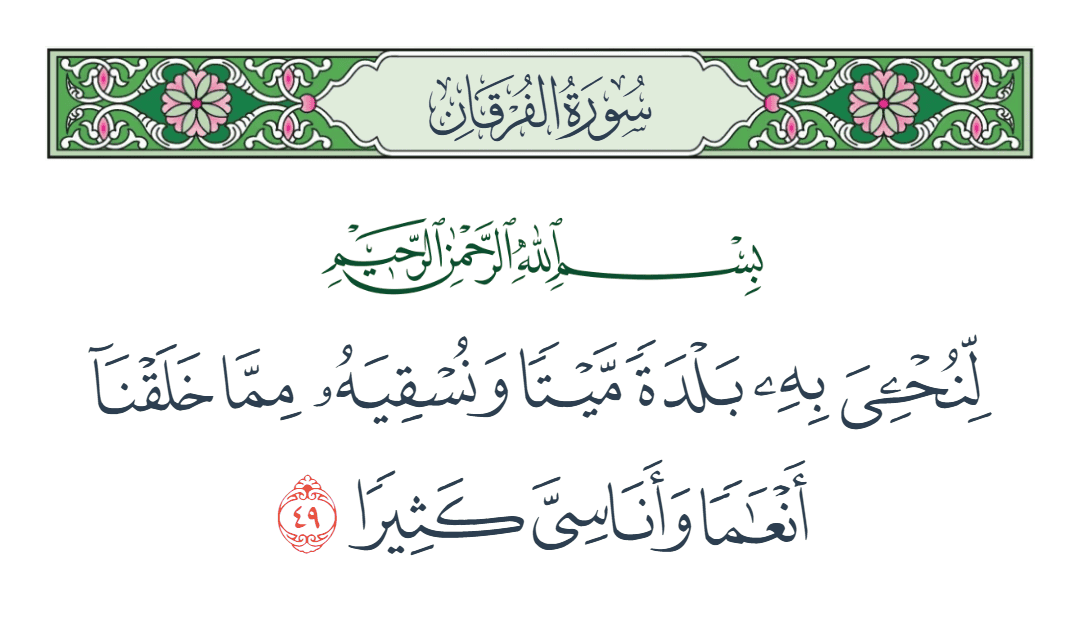 سُورَةُ الْفُرْقَانِ
بِسْمِ ٱللَّهِ ٱلرَّحْمَٰنِ ٱلرَّحِيمِ
لِّنُحْـِۧيَ بِهِۦ بَلْدَةً مَّيْتًا وَنُسْقِيَهُۥ مِمَّا خَلَقْنَآ
أَنْعَٰمًا وَأَنَاسِىَّ كَثِيرًا ٤٩